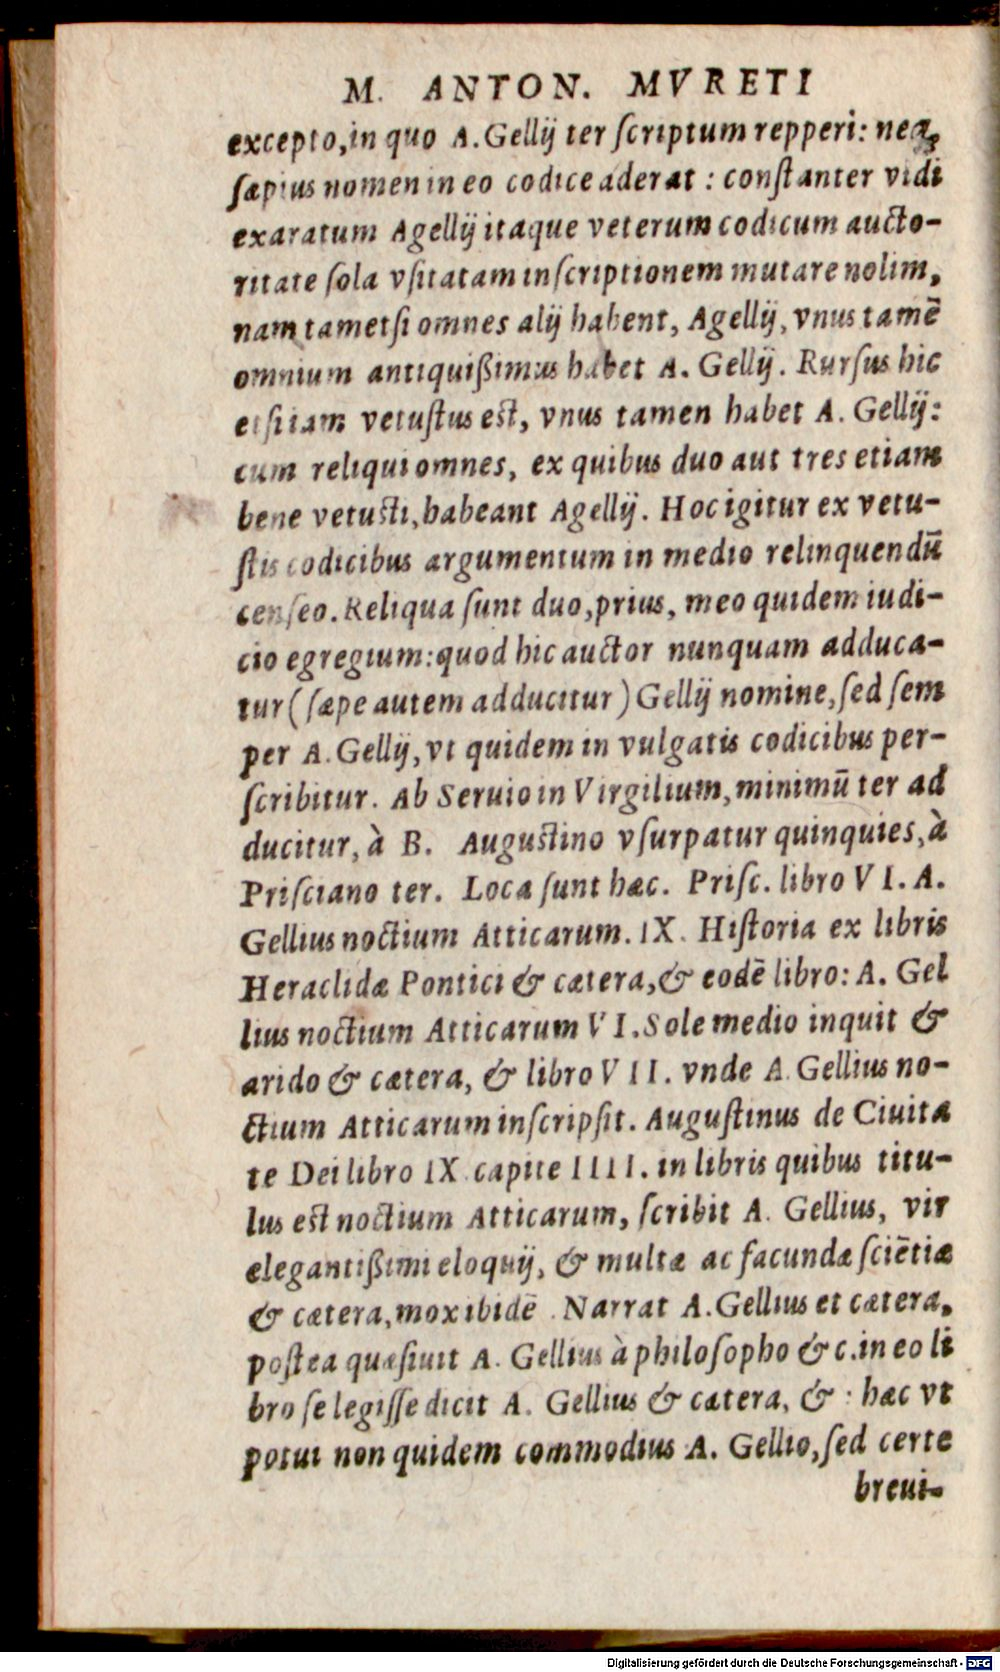 M. ANTON. MVRETI
excepto, in quo A. Gellij ter ſcriptum repperi: neq;
ſæpius nomen in eo codice aderat: conſtanter vidi
exaratum Agellij itaque veterum codicum aucto-
ritate ſola vſitatam inſcriptionem mutare nolim,
nam tametſi omnes alij habent, Agellij, vnus tamē
omnium antiquißimus habet A. Gellij. Rurſus hic
etſi iam vetuſtus eſt, vnus tamen habet A. Gellij:
cum reliqui omnes, ex quibus duo aut tres etiam
bene vetuſti, habeant Agellij. Hoc igitur ex vetu-
ſtis codicibus argumentum in medio relinquendū
cenſeo. Reliqua ſunt duo, prius, meo quidem iudi-
cio egregium: quod hic auctor nunquam adduca-
tur (ſæpe autem adducitur) Gellij nomine, ſed ſem
per A. Gellij, vt quidem in vulgatis codicibus per-
ſcribitur. Ab Seruio in Virgilium, minimū ter ad
ducitur, à B. Auguſtino vſurpatur quinquies, à
Priſciano ter. Loca ſunt hæc. Priſc. libro VI. A.
Gellius noctium Atticarum. IX. Hiſtoria ex libris
Heraclidæ Pontici & cætera, & eodē libro: A. Gel
lius noctium Atticarum VI. Sole medio inquit &
arido & cætera, & libro VII. vnde A. Gellius no-
ctium Atticarum inſcripſit. Auguſtinus de Ciuita
te Dei libro IX capite IIII. in libris quibus titu-
lus eſt noctium Atticarum, ſcribit A. Gellius, vir
elegantißimi eloquij, & multæ ac facundæ ſciētiæ
& cætera, mox ibidē. Narrat A. Gellius et cætera,
poſtea quæſiuit A. Gellius à philoſopho & c. in eo li
bro ſe legiſſe dicit A. Gellius & cætera, & : hæc vt
potui non quidem commodius A. Gellio, ſed certe
breui-
Digitalisierung gefördert durch die Deutsche Forschungsgemeinschaft - DFG